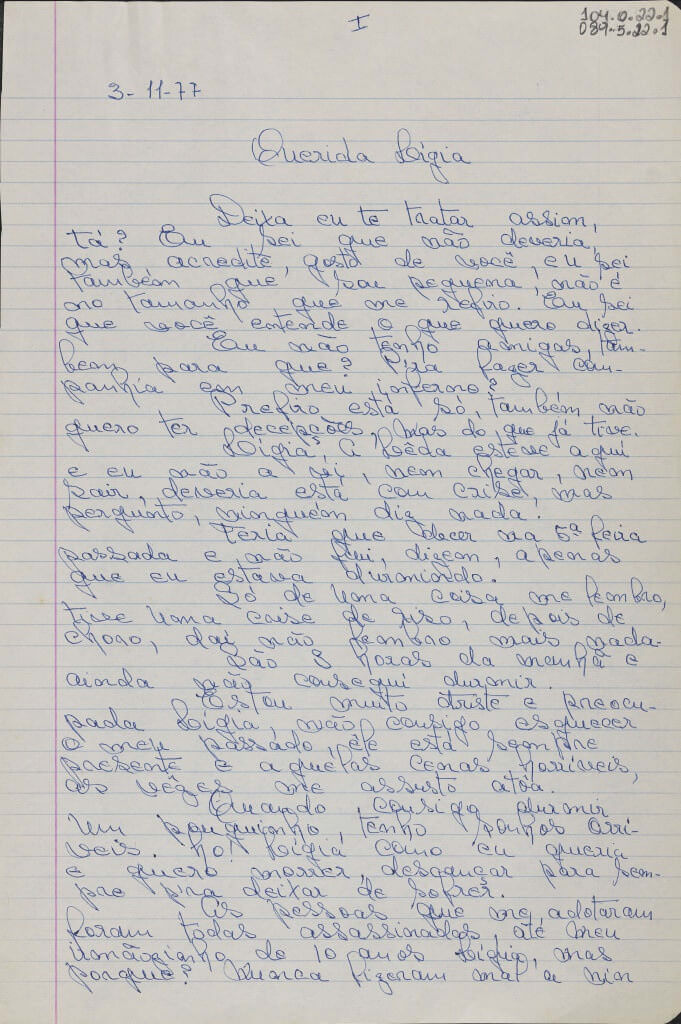 I
104.0.22.1
089.5.22.1
3-11-77
Querida Lígia
Deixa eu te tratar assim,
tá? Eu sei que não deveria,
mas acredite, gosto de você, eu sei
também que sou pequena, não é
no tamanho que me refiro. Eu sei
que você entende o que quero dizer.
Eu não tenho amigas, tam-
bem para que? Pra fazer com-
panhia em meu inferno?
Prefiro está só, também não
quero ter decepções, mas do que já tive.
Lígia, a Lêda esteve aqui
e eu não a vi, nem chegar, nem
sair, deveria está com crise, mas
pergunto, ninguém diz nada.
Teria que descer na 5ª feira
passada e não fui, dizem, apenas
que eu estava durmindo.
Só de uma coisa me lembro,
tive uma crise de riso, depois de
choro, daí não lembro mais nada.
São 8 horas da manhã e
ainda não consegui durmir.
Estou muito triste e preocu-
pada Lígia, não consigo esquecer
o meu passado, êle está sempre
presente e aquelas cenas horríveis,
as vêzes me assusto atôa.
Quando consigo durmir
um pouquinho, tenho sonhos orri-
veis. Lígia como eu queria
e quero morrer, descançar para sem-
pre pra deixar de sofrer.
As pessoas que me adotaram
foram todas assassinadas, até meu
irmãozinho de 10 anos Lígia, mas
porque? Nunca fizeram mal a nin